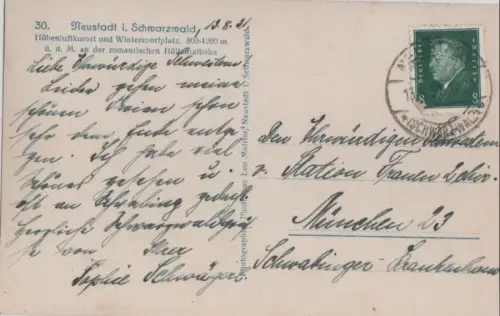 30. Neustadt i. Schwarzwald,
13.8.31.
Höhenluftkurort und Wintersportplatz, 800-1200 m
ü. d. M. an der romantischen Höllentalbahn
Liebe Ehrwürdige Schwestern
Leider gehen meine
schönen Ferien schon
sehr dem Ende entge
gen. Ich habe viel
Schönes gesehen u.
oft an Schwabing gedacht
Herzliche Schwarzwaldgrüs
se von Ihrer
Sophie Schwaiger
Neustadt i. Schwarzwald
DEUTSCHES REICH
(SCHWARZWALD)
Den Ehrwürdigen Schwestern
v. Station Frauen 2 Chir.
München 23
Schwabinger-Krankenhaus